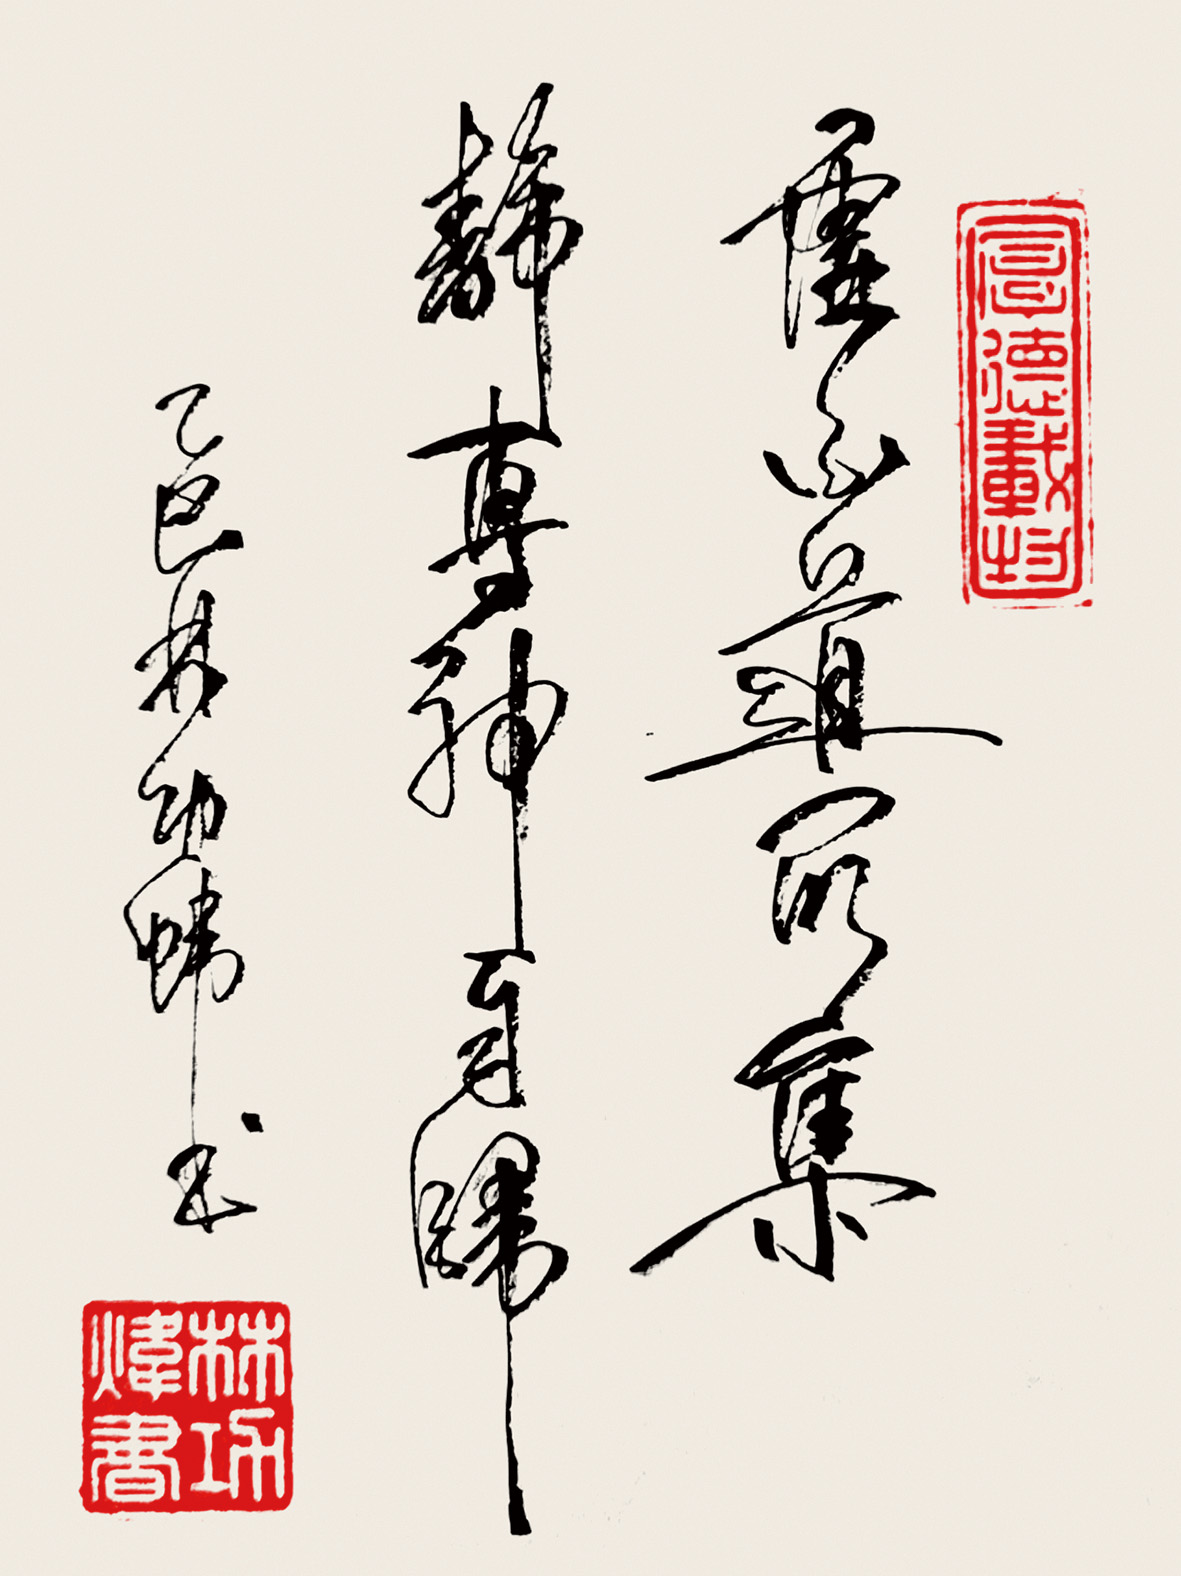 厚德載物
虛心道所集
靜專神自歸
乙巳林功煒書
林功
煒書